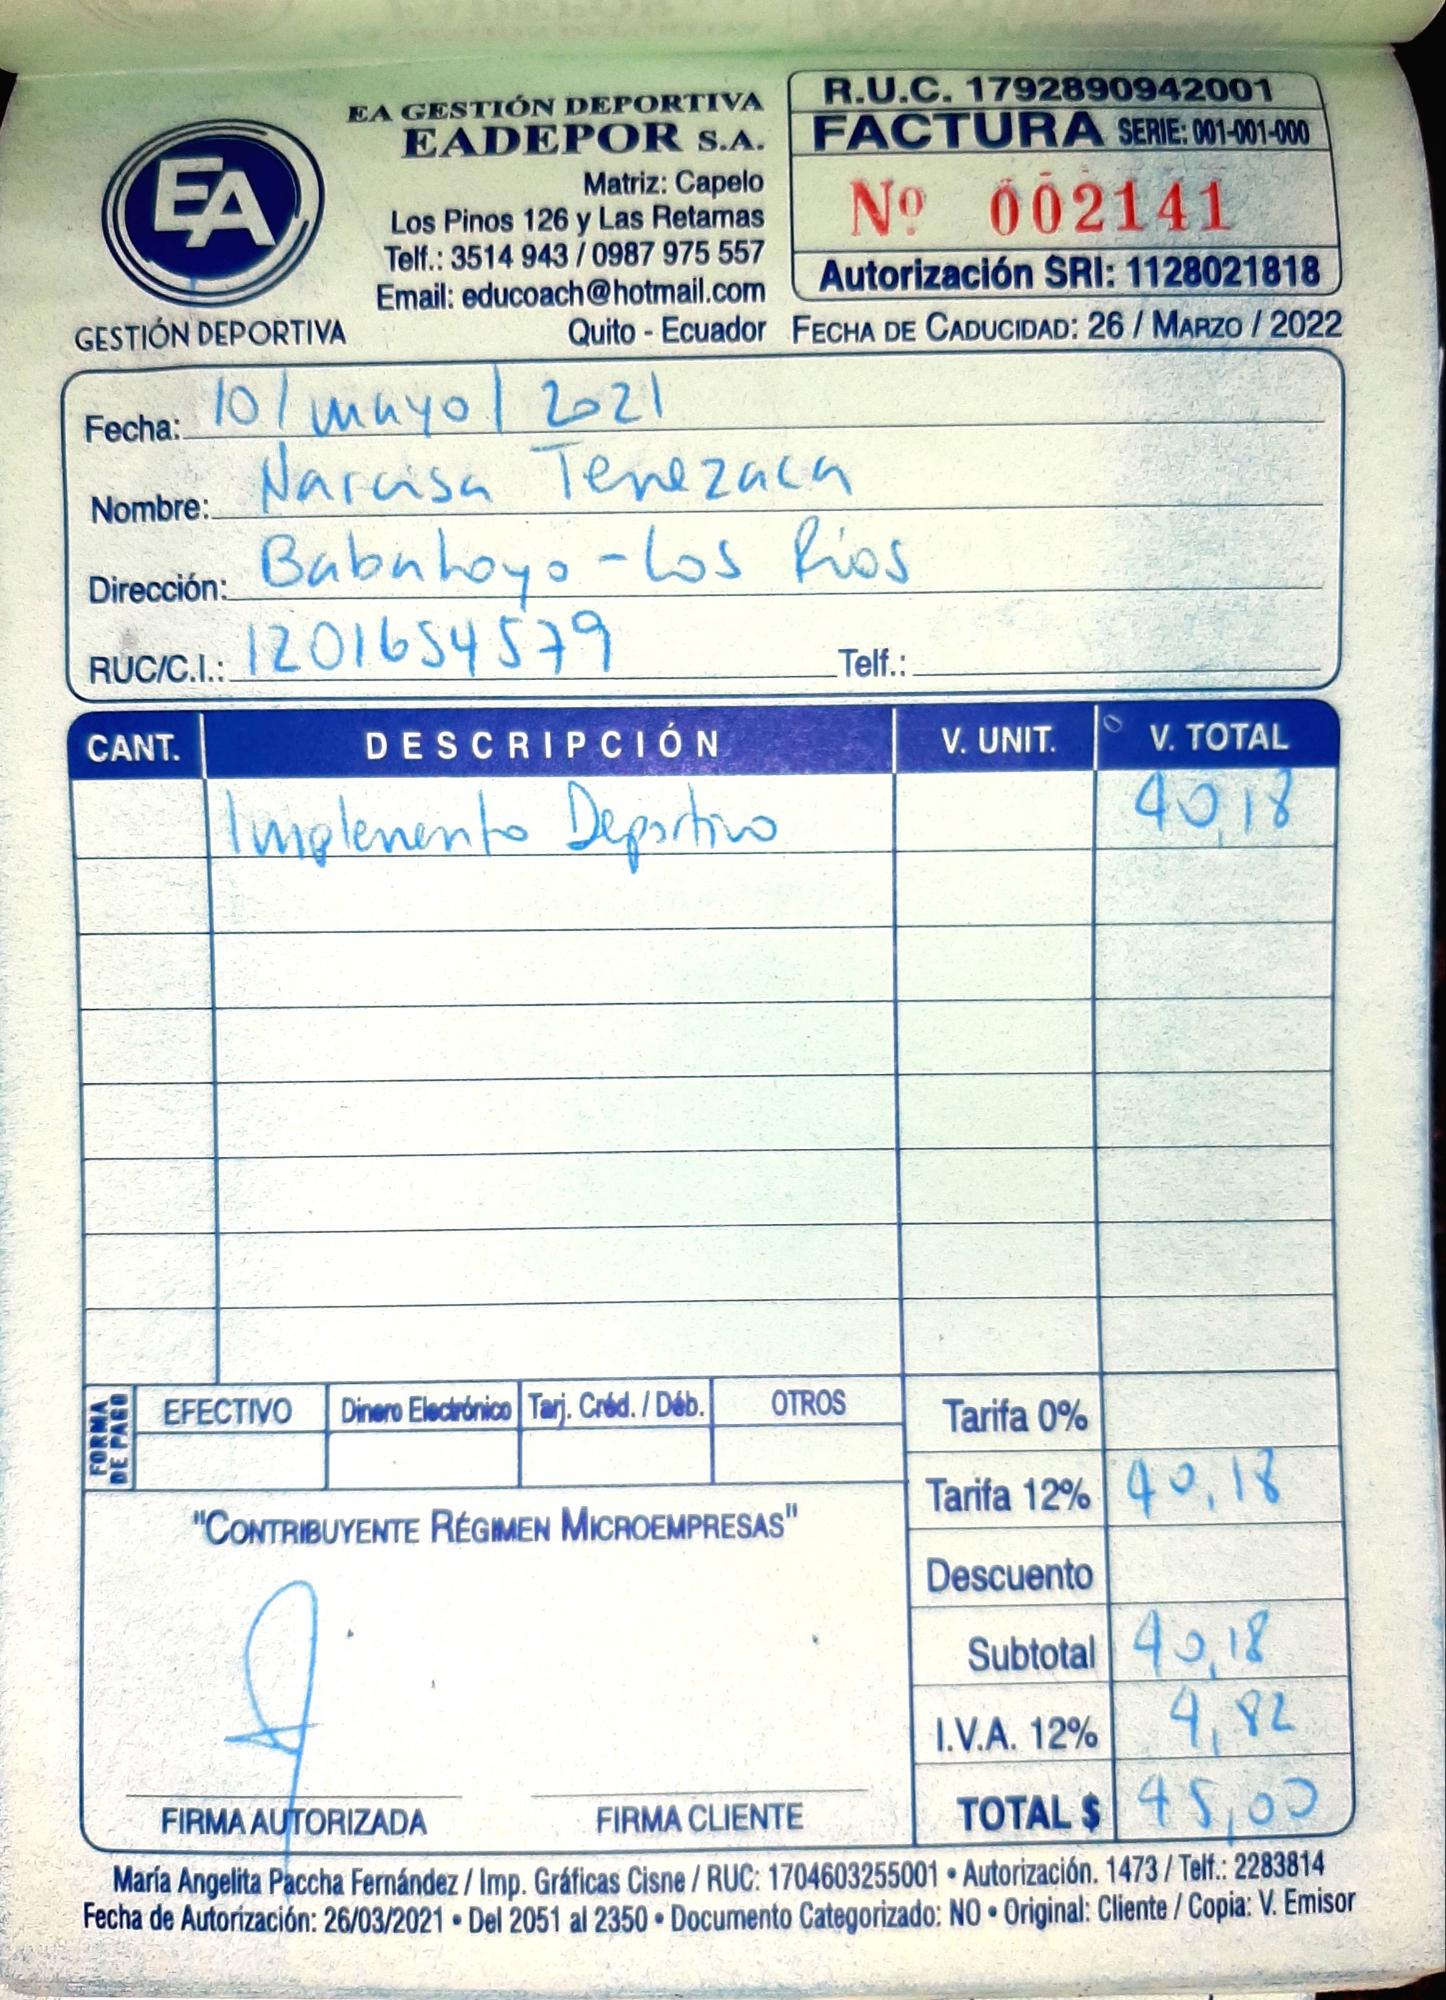 EA
GESTIÓN DEPORTIVA
EA GESTIÓN DEPORTIVA
EADEPOR S.A.
Matriz: Capelo
Los Pinos 126 y Las Retamas
Telf.: 3514 943 / 0987 975 557
Email: educoach@hotmail.com
Quito - Ecuador
R.U.C. 1792890942001
FACTURA SERIE: 001-001-000
Nº 002141
Autorización SRI: 1128021818
FECHA DE CADUCIDAD: 26 / MARZO / 2022
Fecha: 10/mayo/2021
Nombre: Narcisa Tenezaca
Dirección: Babahoyo - Los Ríos
RUC/C.I.: 1201654579 Telf.:
CANT. DESCRIPCIÓN V. UNIT. V. TOTAL
Implemento Deportivo 40,18
FORMA DE PAGO EFECTIVO Dinero Electrónico Tarj. Créd. / Déb. OTROS
Tarifa 0%
Tarifa 12% 40,18
Descuento
Subtotal 40,18
I.V.A. 12% 4,82
TOTAL $ 45,00
"CONTRIBUYENTE RÉGIMEN MICROEMPRESAS"
FIRMA AUTORIZADA FIRMA CLIENTE
María Angelita Paccha Fernández / Imp. Gráficas Cisne / RUC: 1704603255001 • Autorización. 1473 / Telf.: 2283814
Fecha de Autorización: 26/03/2021 • Del 2051 al 2350 • Documento Categorizado: NO • Original: Cliente / Copia: V. Emisor